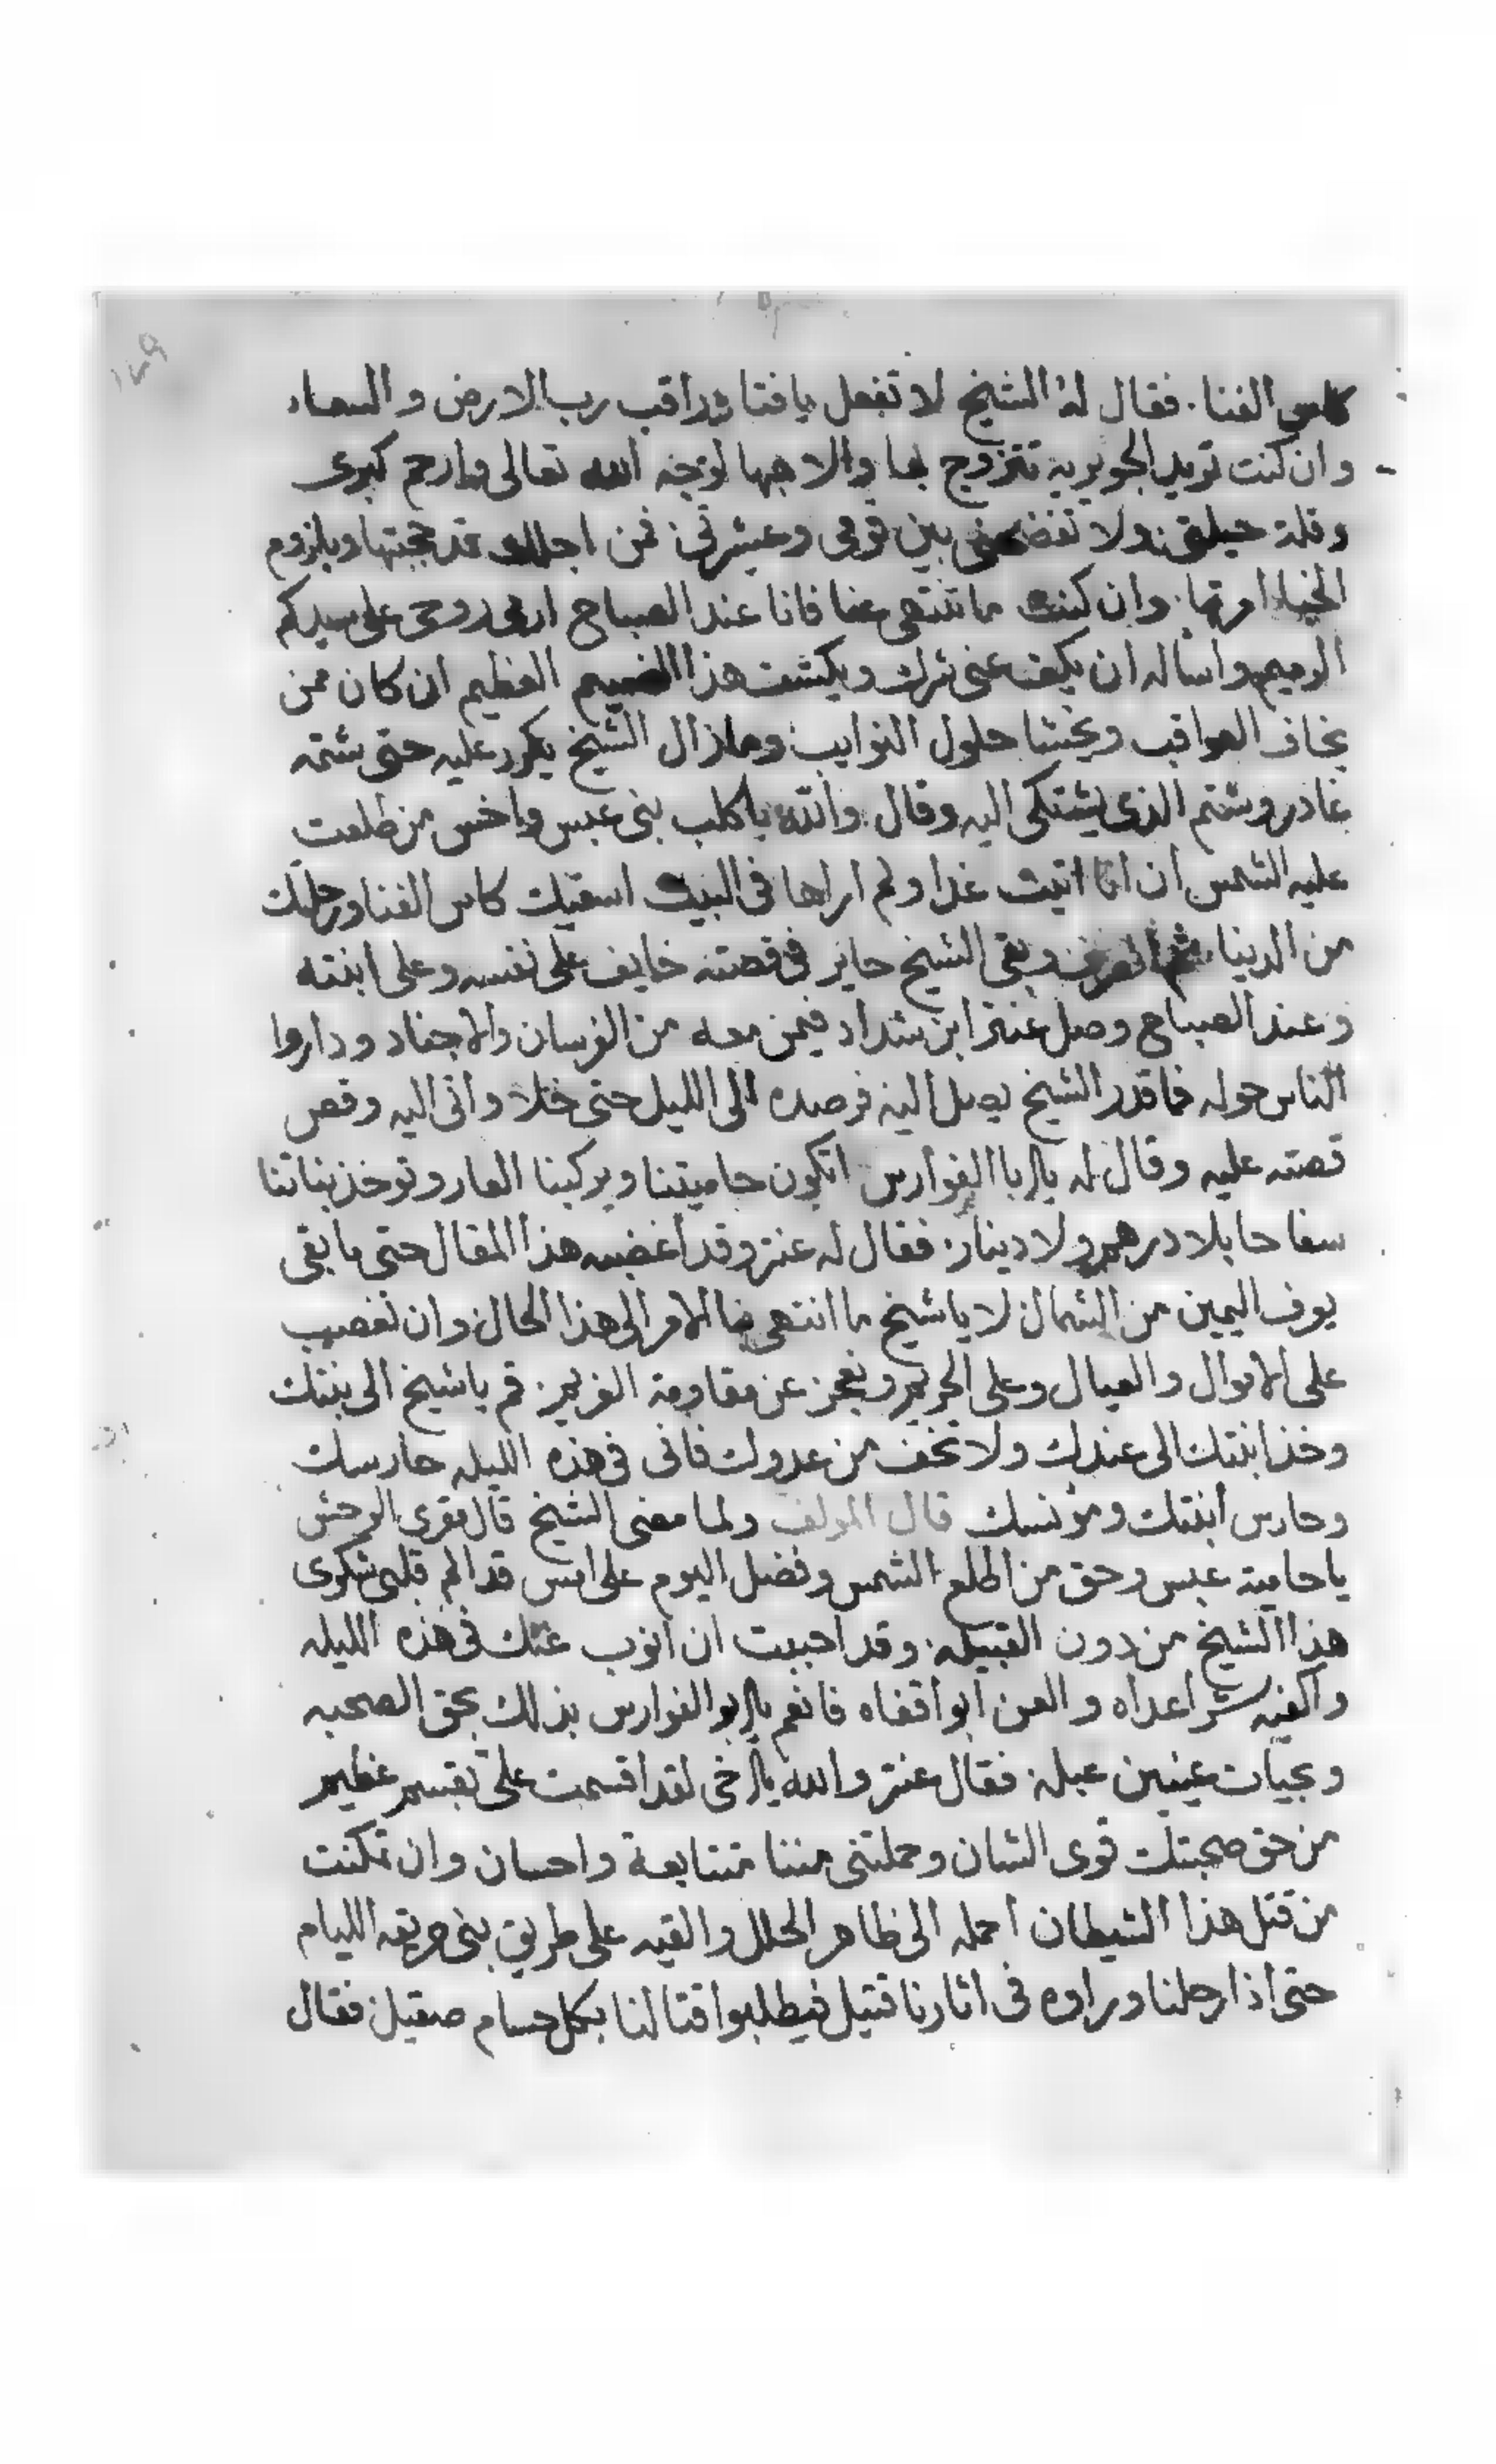 كاس الفنا. فقال له الشيخ لا تفعل يا فتا وراقب رب الارض والسماء
وان كنت تريد الجويريه تتزوج بها والا هبها لوجه الله تعالى وارحم كبرى
وقلة حيلتى ولا تفضحنى بين قومى وعشرتى فمن اجلك قد حجبتها ويلزوم
الخباء امرتها. وان كنت ما تنتهى عنا فانا عند الصباح ارمى روحى على سيدكم
الرحيم واساله ان يكف عنى شرك ويكشف هذا الضيم العظيم ان كان ممن
يخاف العواقب ويخشا حلول النوايب وما زال الشيخ يكرر عليه حتى شتمه
غادر وشتم الذى يشتكى اليه وقال والله يا كلب بنى عبس واخس من طلعت
عليه الشمس ان انا اتيت غدا ولم اراها فى البيت اسقيك كاس الفنا ورحلك
من الدنيا ثم انصرف وبقى الشيخ حاير فى قصته خايف على نفسه وعلى ابنته
وعند الصباح وصل عنتر ابن شداد فيمن معه من الفرسان والاجناد وداروا
الناس حوله فما قدر الشيخ يصل اليه فرصده الى الليل حتى خلا واتى اليه وقص
قصته عليه وقال له يا ابا الفوارس اتكون حاميتنا ويركبنا العار وتوخذ بناتنا
سفاحا بلا درهم ولا دينار. فقال له عنتر وقد اغضبه هذا المقال حتى ما بقى
يعرف اليمين من الشمال لا يا شيخ ما انتهى بنا الامر الى هذا الحال وان نغصب
على الاموال والعيال وعلى الحريم ونعجز عن مقاومة الغريم. قم يا شيخ الى بيتك
وخذ ابنتك الى عندك ولا تخف من عدوك فانى فى هذه الليله حارسك
وحارس ابنتك ومونسك قال المولف ولما مضى الشيخ قال مقرى الوحش
يا حامية عبس وحق من اطلع الشمس وفضل اليوم على امس قد الم قلبى شكوى
هذا الشيخ من دون القبيله. وقد احببت ان انوب عنك فى هذه الليله
واكفيه شر اعداه والعن ابو اقفاه فانعم يا ابو الفوارس بذلك بحق الصحبه
وبحيات عينين عبله. فقال عنتر والله يا اخى لقد اقسمت على بقسم عظيم
من حق صحبتك قوى الشان وحملتنى مننا متتابعة واحسان وان تمكنت
من قتل هذا الشيطان احمله الى ظاهر الحلل والقيه على طريق بنى حريقه الليام
حتى اذا رحلنا وراوه فى اثارنا قتيل فيطلبوا قتالنا بكل حسام صقيل فقال